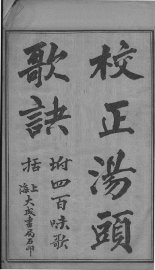 校正湯頭
歌訣
坿四百味歌
括
上海大成書局石印